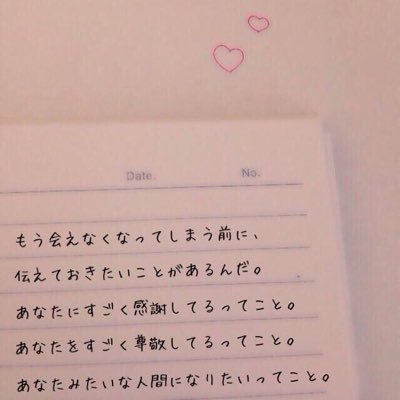 Date.
No.
もう会えなくなってしまう前に、
伝えておきたいことがあるんだ。
あなたにすごく感謝してるってこと。
あなたをすごく尊敬してるってこと。
あなたみたいな人間になりたいってこと。